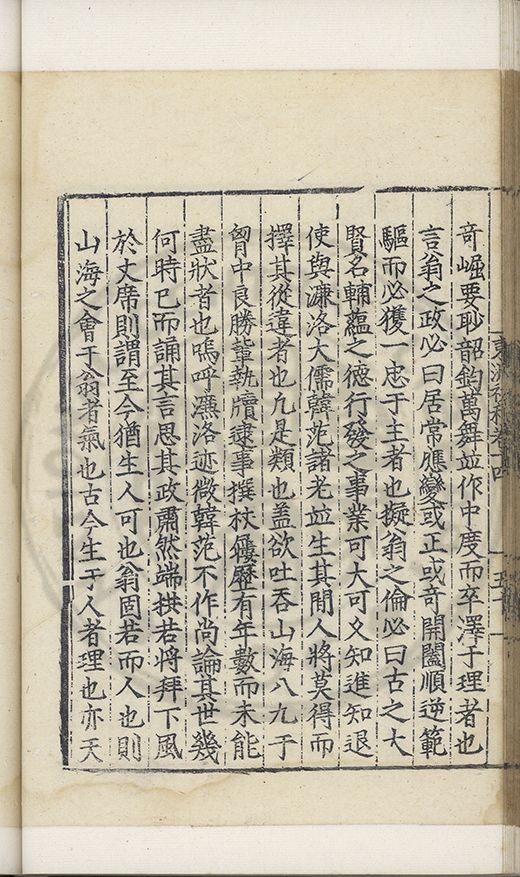 奇崛要眇韶鈞萬舞並作中度而卒澤于理者也
言翁之政必曰居常應變或正或奇開闔順逆範
驅而必獲一忠于主者也擬翁之倫必曰古之大
賢名輔蘊之德行發之事業可大可久知進知退
使與濂洛大儒韓范諸老並生其間人將莫得而
擇其從違者也凢是類也盖欲吐吞山海八九于
胷中良勝輩執牘逮事撰杖屨歷有年數而未能
盡狀者也嗚呼濂洛迹微韓范不作尚論其世幾
何時已而誦其言思其政肅然端拱若將拜下風
於丈席則謂至今猶生人可也翁固若而人也則
山海之會于翁者氣也古今生于人者理也亦天